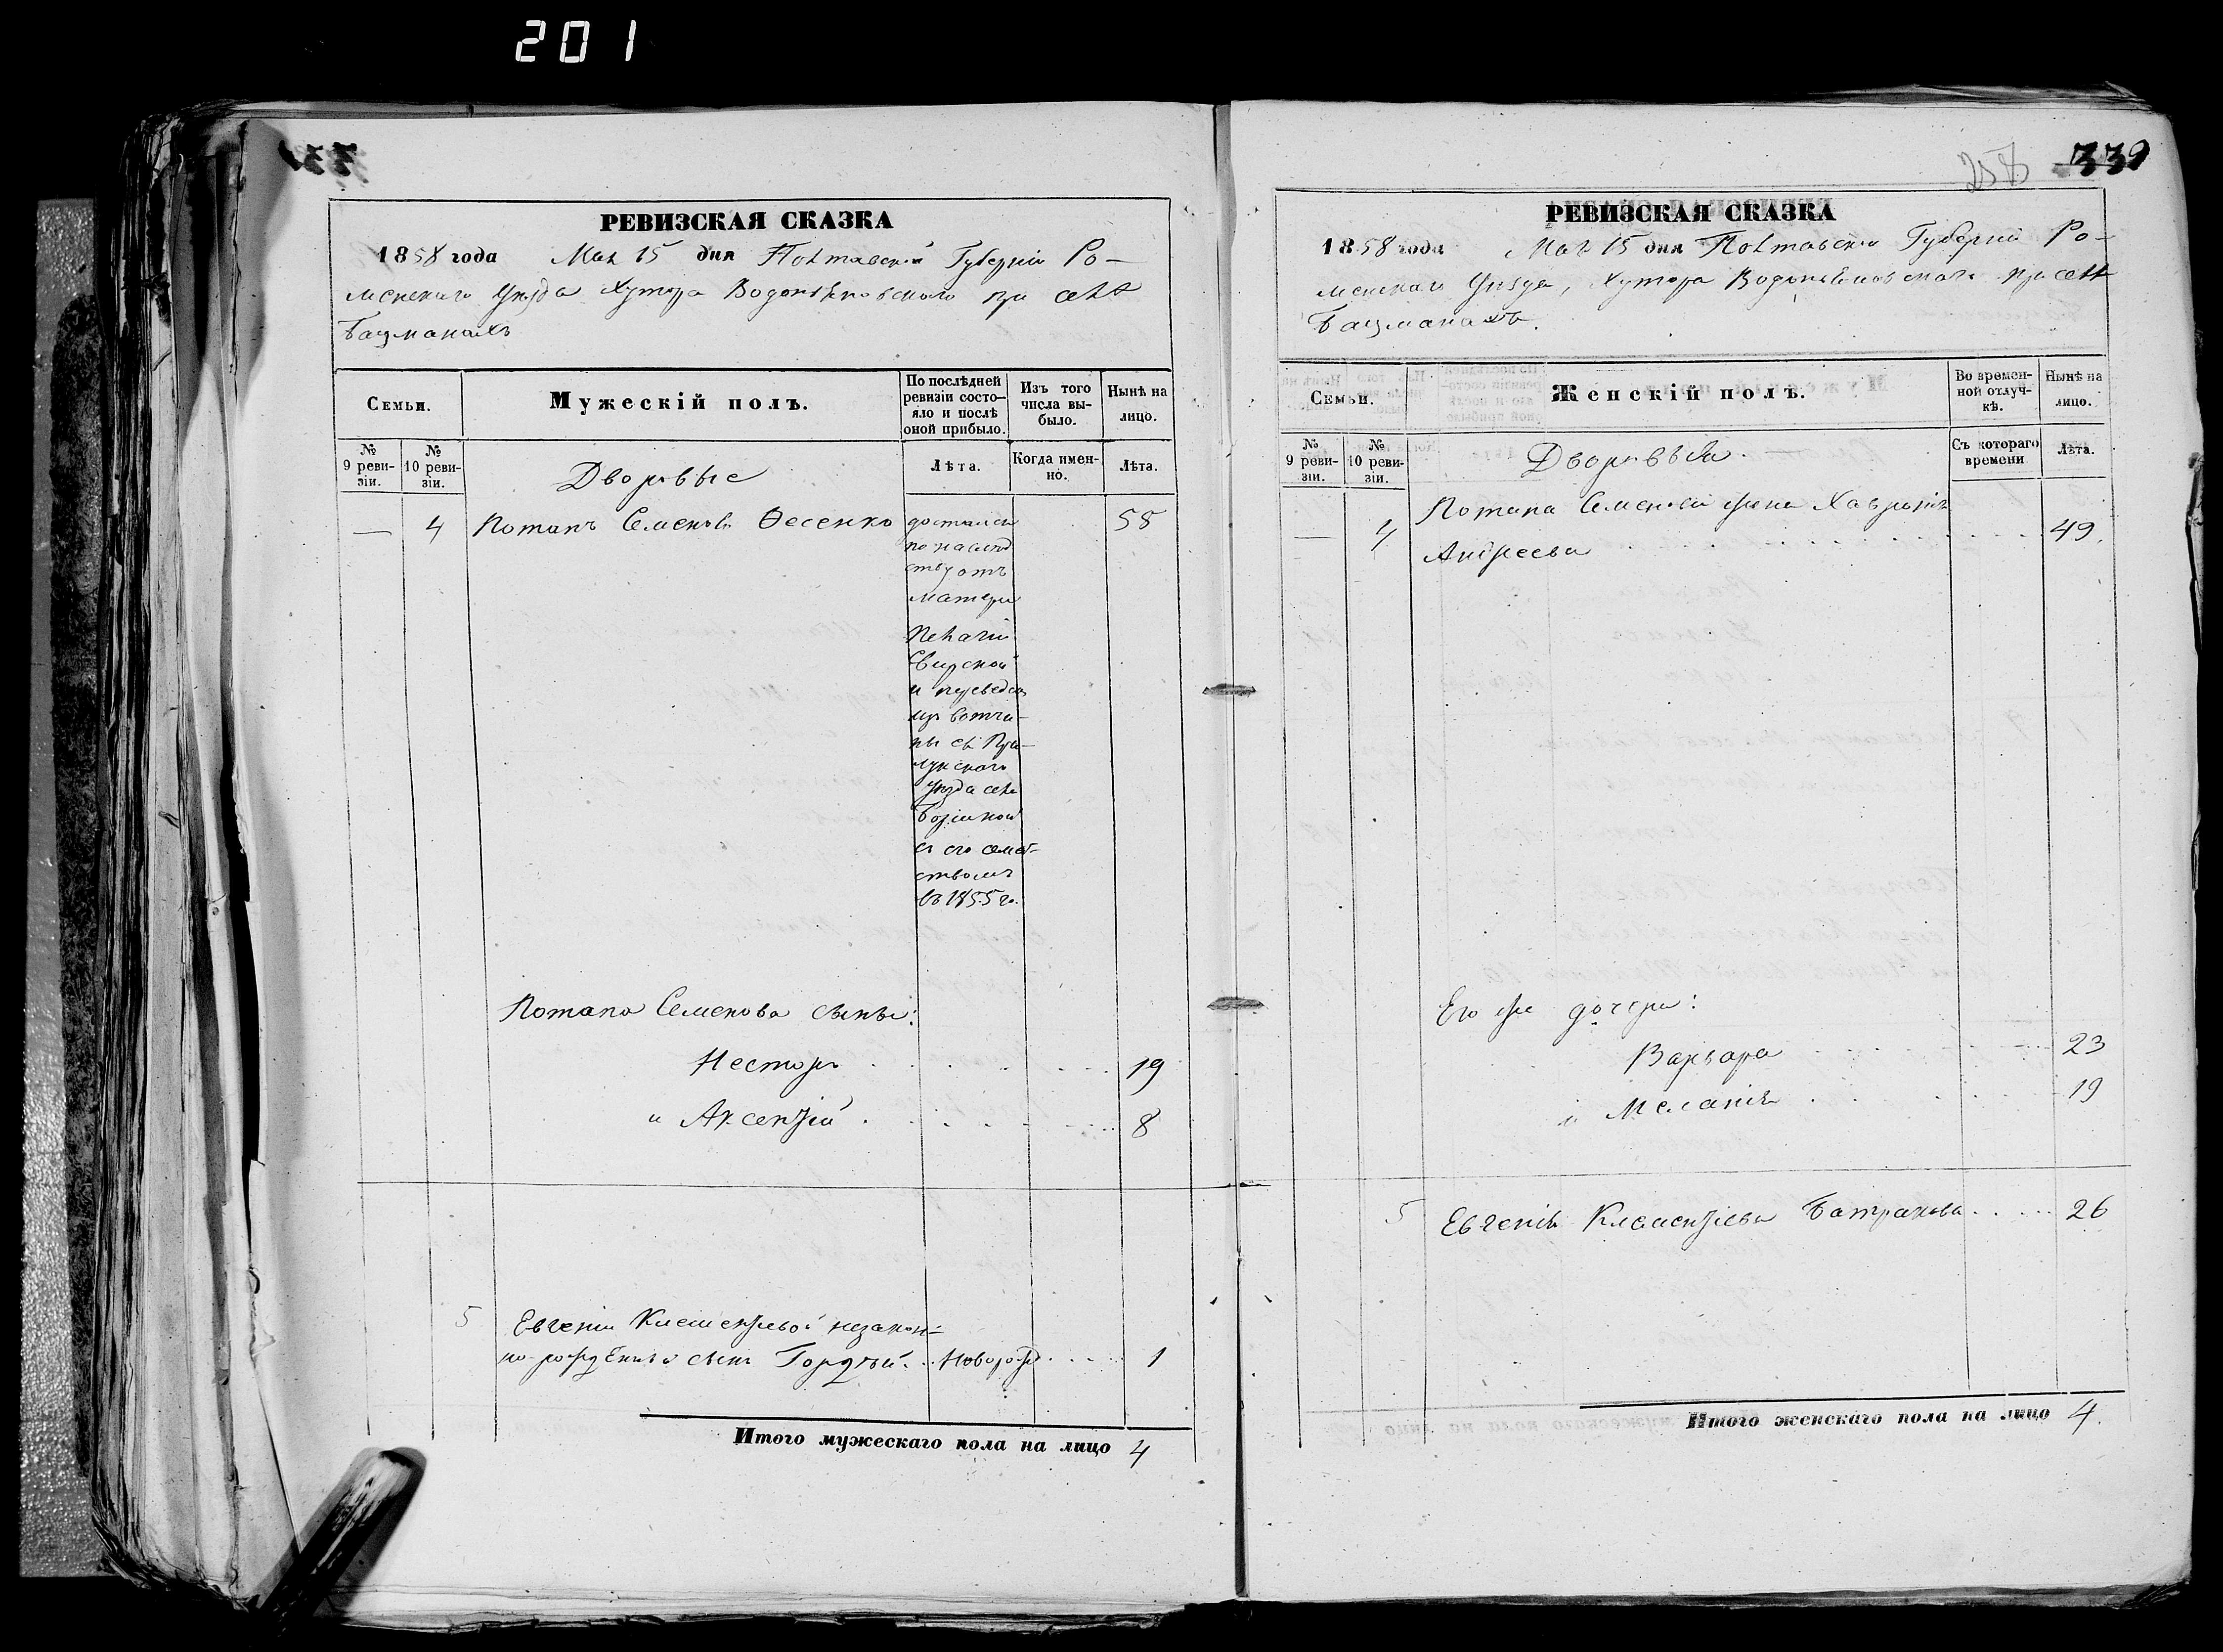 201
РЕВИЗСКАЯ СКАЗКА
1858 года Мая 15 дня Полтавской Губернiи Ро-
менскаго уѣзда Хутора при селѣ
Бацманахъ
Семьи.
Мужескiй полъ.
По послѣдней ревизiи состо-яло и послѣ оной прибыло.
Изъ того числа вы-было.
Нынѣ на лицо.
№ 9 реви-зiи.
№ 10 реви-зiи.
Дворовые
Лѣта.
Когда имен-но.
Лѣта.
— 4 Потапъ Семеновъ Ѳесенко 58
достался
по наслѣд
ству отъ
матери
Пелагiи
Свирской
и переведенъ
изъ вотчи-
ны ея При-
лукскаго
уѣзда села
съ его семей-
ствомъ
въ 1855 го.
Потапа Семенова сыны:
Несторъ 19
и Аксентiй 8
5 Евгенiи Клементьевой незакон-
но-рожденный сынъ Гордѣй. Новорож 1
Итого мужескаго пола на лицо 4
258 339
РЕВИЗСКАЯ СКАЗКА
1858 года Мая 15 дня Полтавской Губернiи Ро-
менскаго уѣзда, Хутора при селѣ
Бацманахъ.
Семьи.
Женскiй полъ.
Во времен-ной отлуч-кѣ.
Нынѣ на лицо.
№ 9 реви-зiи.
№ 10 реви-зiи.
Дворовыя.
Съ котораго времени
Лѣта.
Потапа Семенова жена Хавронiя
— 4 Андреева 49.
Его же дочери:
Варвара 23
и Меланiя 19
5 Евгенiя Клементьева Батракова 26
Итого женскаго пола на лицо 4.